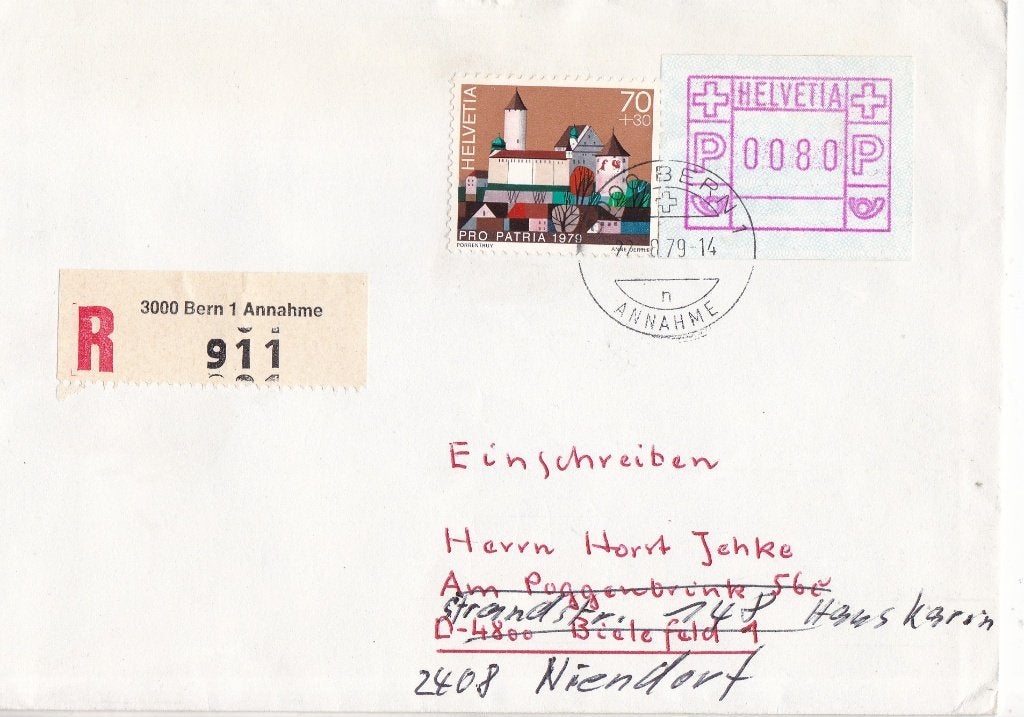 HELVETIA
70
+30
PRO PATRIA 1979
PORRENTRUY
HELVETIA
P 0080 P
BERN 1
8.79-14
n
ANNAHME
R
3000 Bern 1 Annahme
911
Einschreiben
Herrn Horst Jehke
Am Poggenbrink 56c
Strandstr. 148 Haus Karin
D-4800 Bielefeld 1
2408 Niendorf